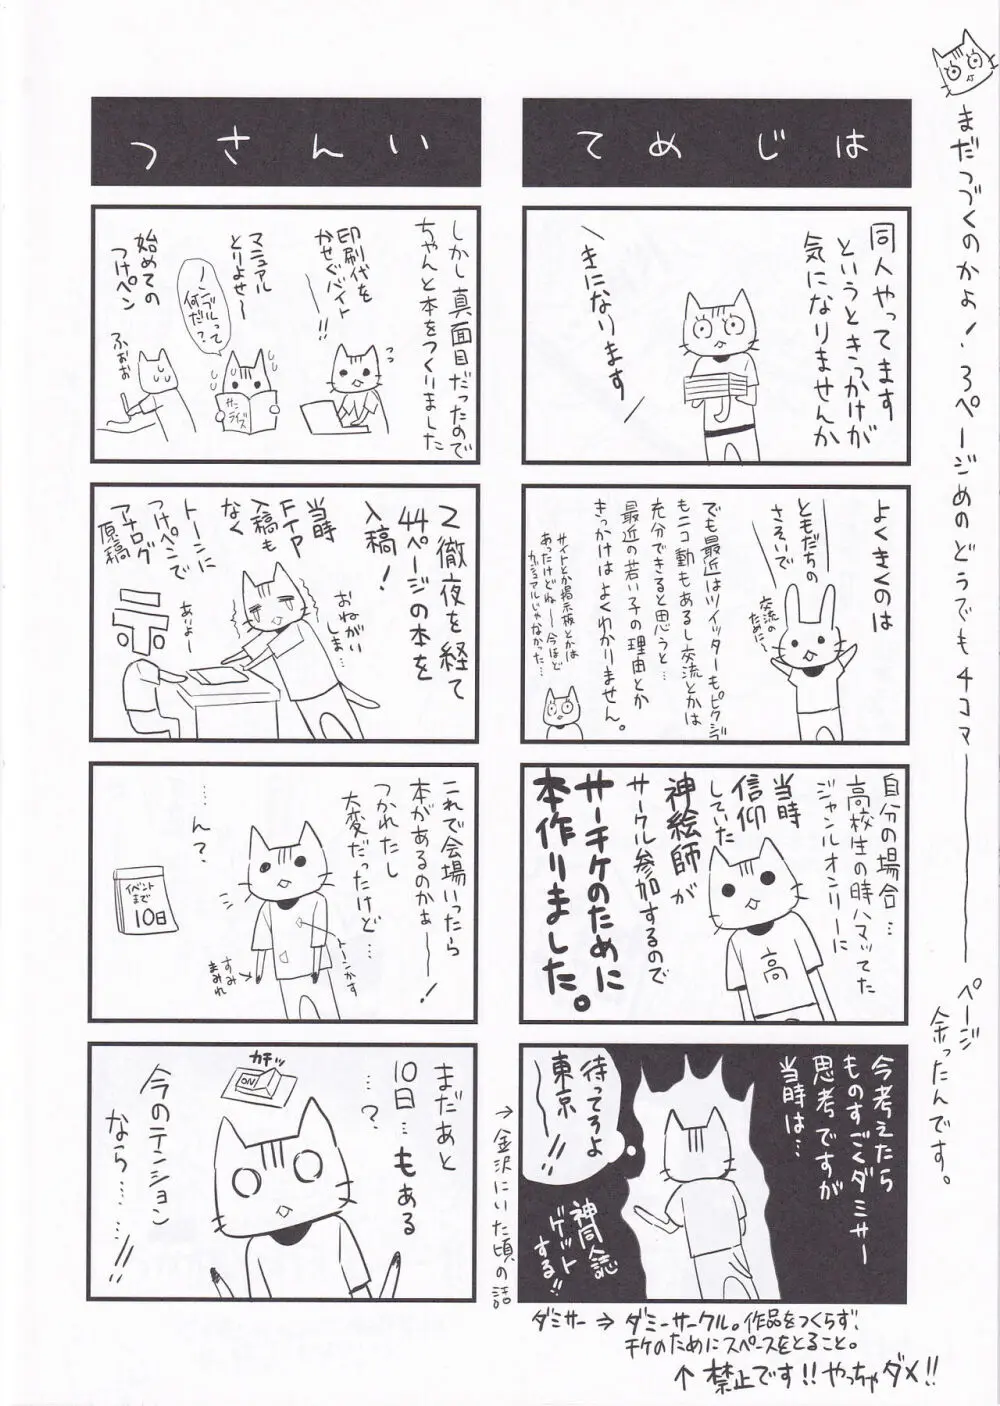 まだつづくのかよ!3ページめのどうでも4コマーーー
ページ
余ったんです。
はじめて
同人やってます
というときっかけが
気になりませんか
きになります
よくきくのは
ともだちの
さそいで
交流の
ために〜
でも最近はツイッターもピクシブ
もニコ動もあるし交流とかは
充分できると思うと…
最近の若い子の理由とか
きっかけはよくわかりません。
サイトとか掲示板とかは
あったけどねー今ほど
カジュアルじゃなかった…
自分の場合…
高校生の時ハマッてた
ジャンルオンリーに
当時
信仰
していた
神絵師が
サークル参加するので
サーチケのために
本作りました。
高
今考えたら
ものすごくダミサー
思考ですが
当時は…
待ってろよ
東京ーー!!
神同人誌
ゲット
する!!
→金沢にいた頃の話
ダミサー→ダミーサークル。作品をつくらず、
チケのためにスペースをとること。
↑禁止です!!やっちゃダメ!!
いんさつ
しかし真面目だったので
ちゃんと本をつくりました
印刷代を
かせぐバイト
ーー!!
マニュアル
とりよせ〜
ノンブルって
何だ?
サン
ライズ
始めての
つけペン
ふぉぉ
2徹夜を経て
44ページの本を
入稿!
当時
FTP
入稿も
なく
トーンに
つけペンで
アナログ
原稿
おねがい
しま…
ありょー
〒
これで会場いったら
本があるのかぁーー!
つかれたし
大変だったけど…
ん?
……
イベント
まで
10日
トーンかす
すみ
まみれ
まだあと
10日…もある
…?
今のテンション
なら……!!
カチッ
ON